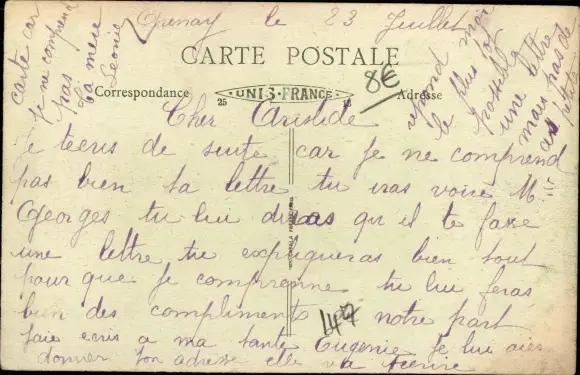 Epenay le 23 Juillet
CARTE POSTALE
Correspondance
UNIS-FRANCE
25
18
Adresse
8€
Cher Aristide
Je tecris de suite car je ne comprend
pas bien ta lettre tu iras voire Mr
Georges tu lui diras qu il te fasse
une lettre tu expliqueras bien tout
pour que je comprenne tu lui feras
bien des compliments de notre part
jaie ecris a ma tante Eugenie je lui aier
donner ton adresse elle va tecrire
147
repond moi
le plus tot
possible
une lettre
mais pas de
petite
carte car
je ne comprend
pas
ta mere
Leonie